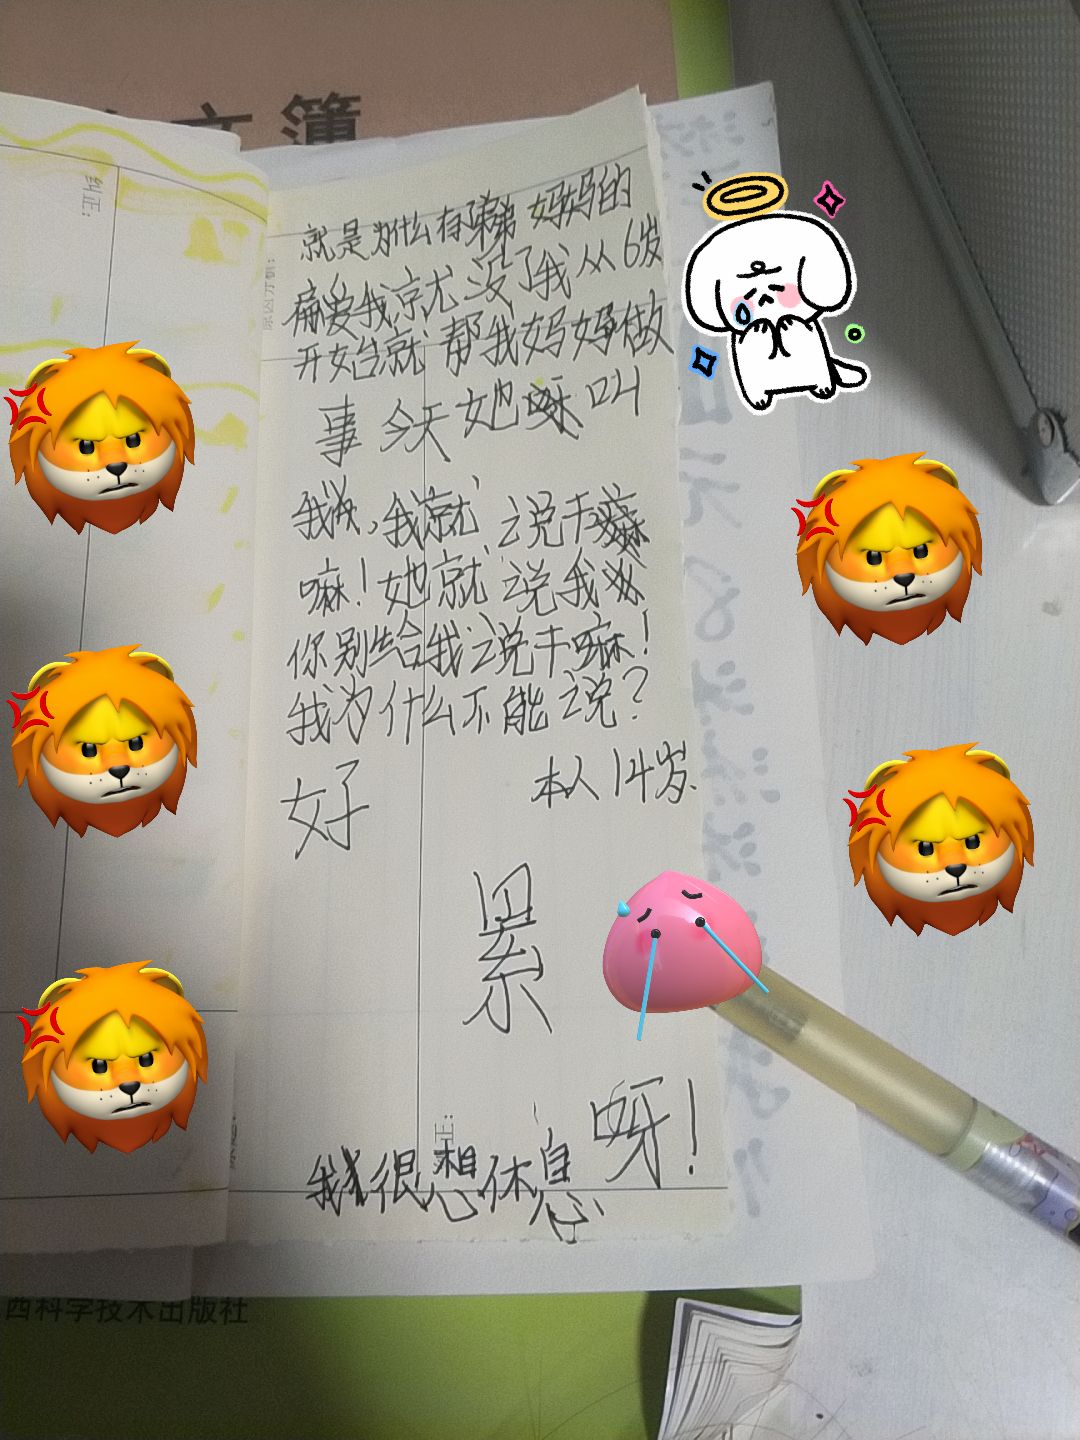 文簿
就是为什么有弟弟妈妈的
痛爱我就没了我从6岁
开始就帮我妈妈做
事今天她叫
我,我就说干
嘛!她就说我
你别给我说干嘛!
我为什么不能说?
本人14岁.
好
累
呀!
我很想休息
西科学技术出版社